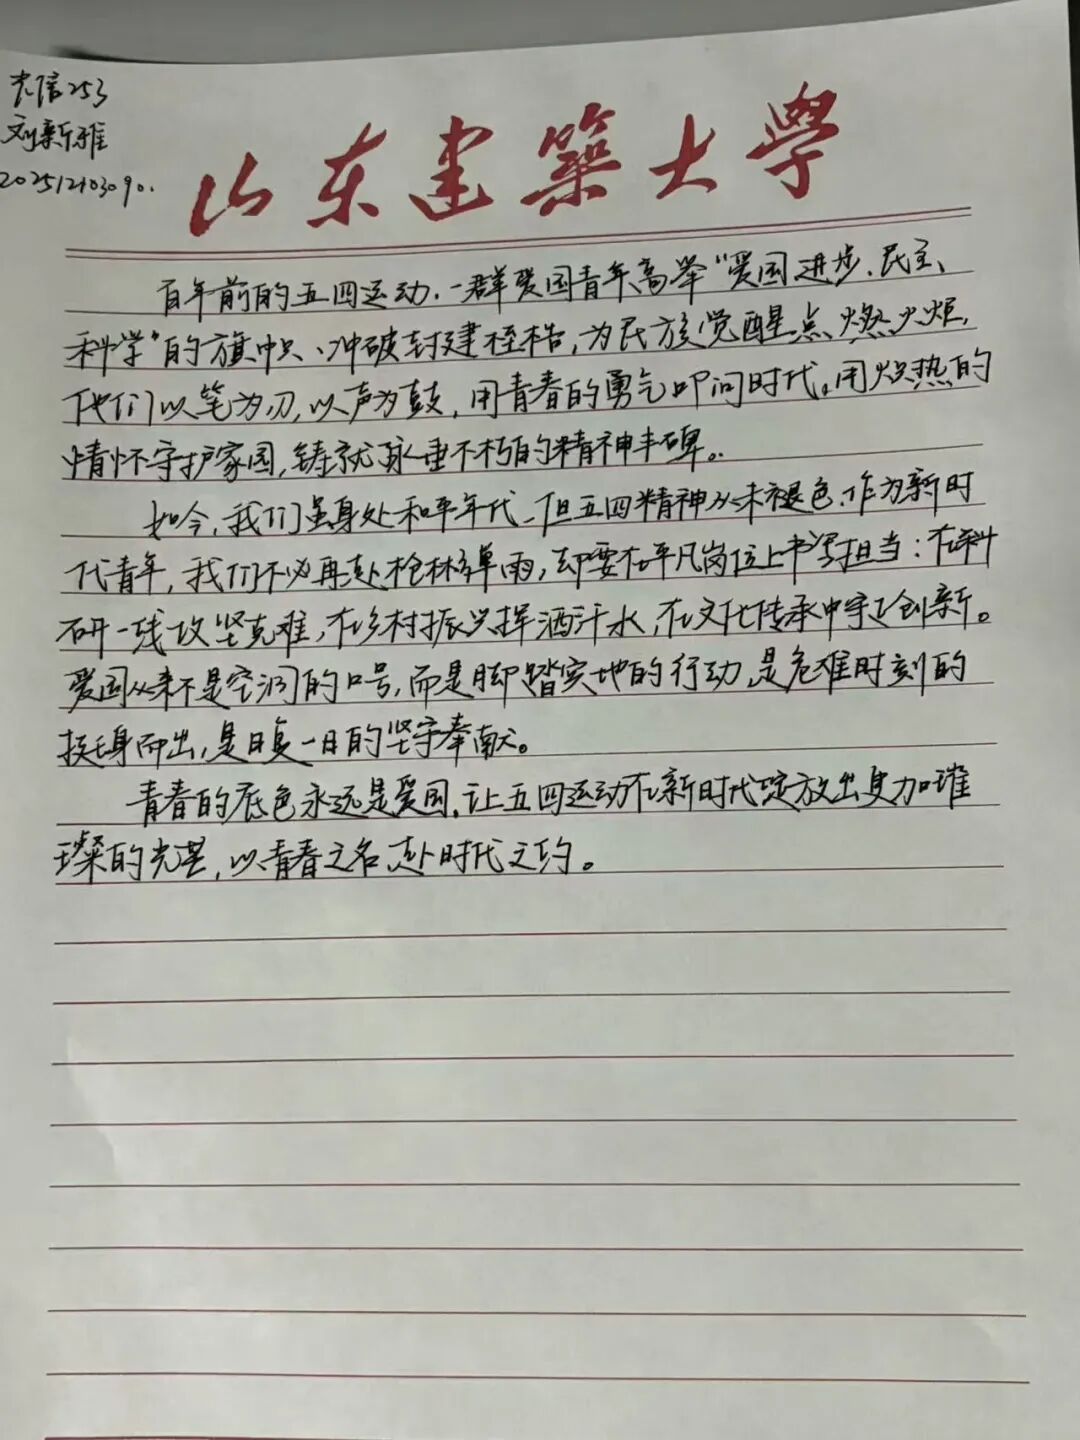 光信253
刘新雅
20251210309０.
山东建筑大学
百年前的五四运动,一群爱国青年高举“爱国进步、民主、
科学”的旗帜、冲破封建桎梏,为民族觉醒点燃火炬,
他们以笔为刃,以声为鼓,用青春的勇气叩问时代。用炽热的
情怀守护家国,铸就永垂不朽的精神丰碑。
如今,我们虽身处和平年代,但五四精神从未褪色,作为新时
代青年,我们不必再赴枪林弹雨,却要在平凡岗位上书写担当:在科
研一线攻坚克难,在乡村振兴挥洒汗水,在文化传承中守正创新。
爱国从来不是空洞的口号,而是脚踏实地的行动,是危难时刻的
挺身而出,是日复一日的坚守奉献。
青春的底色永远是爱国,让五四运动在新时代绽放出更加璀
璨的光芒,以青春之名,赴时代之约。